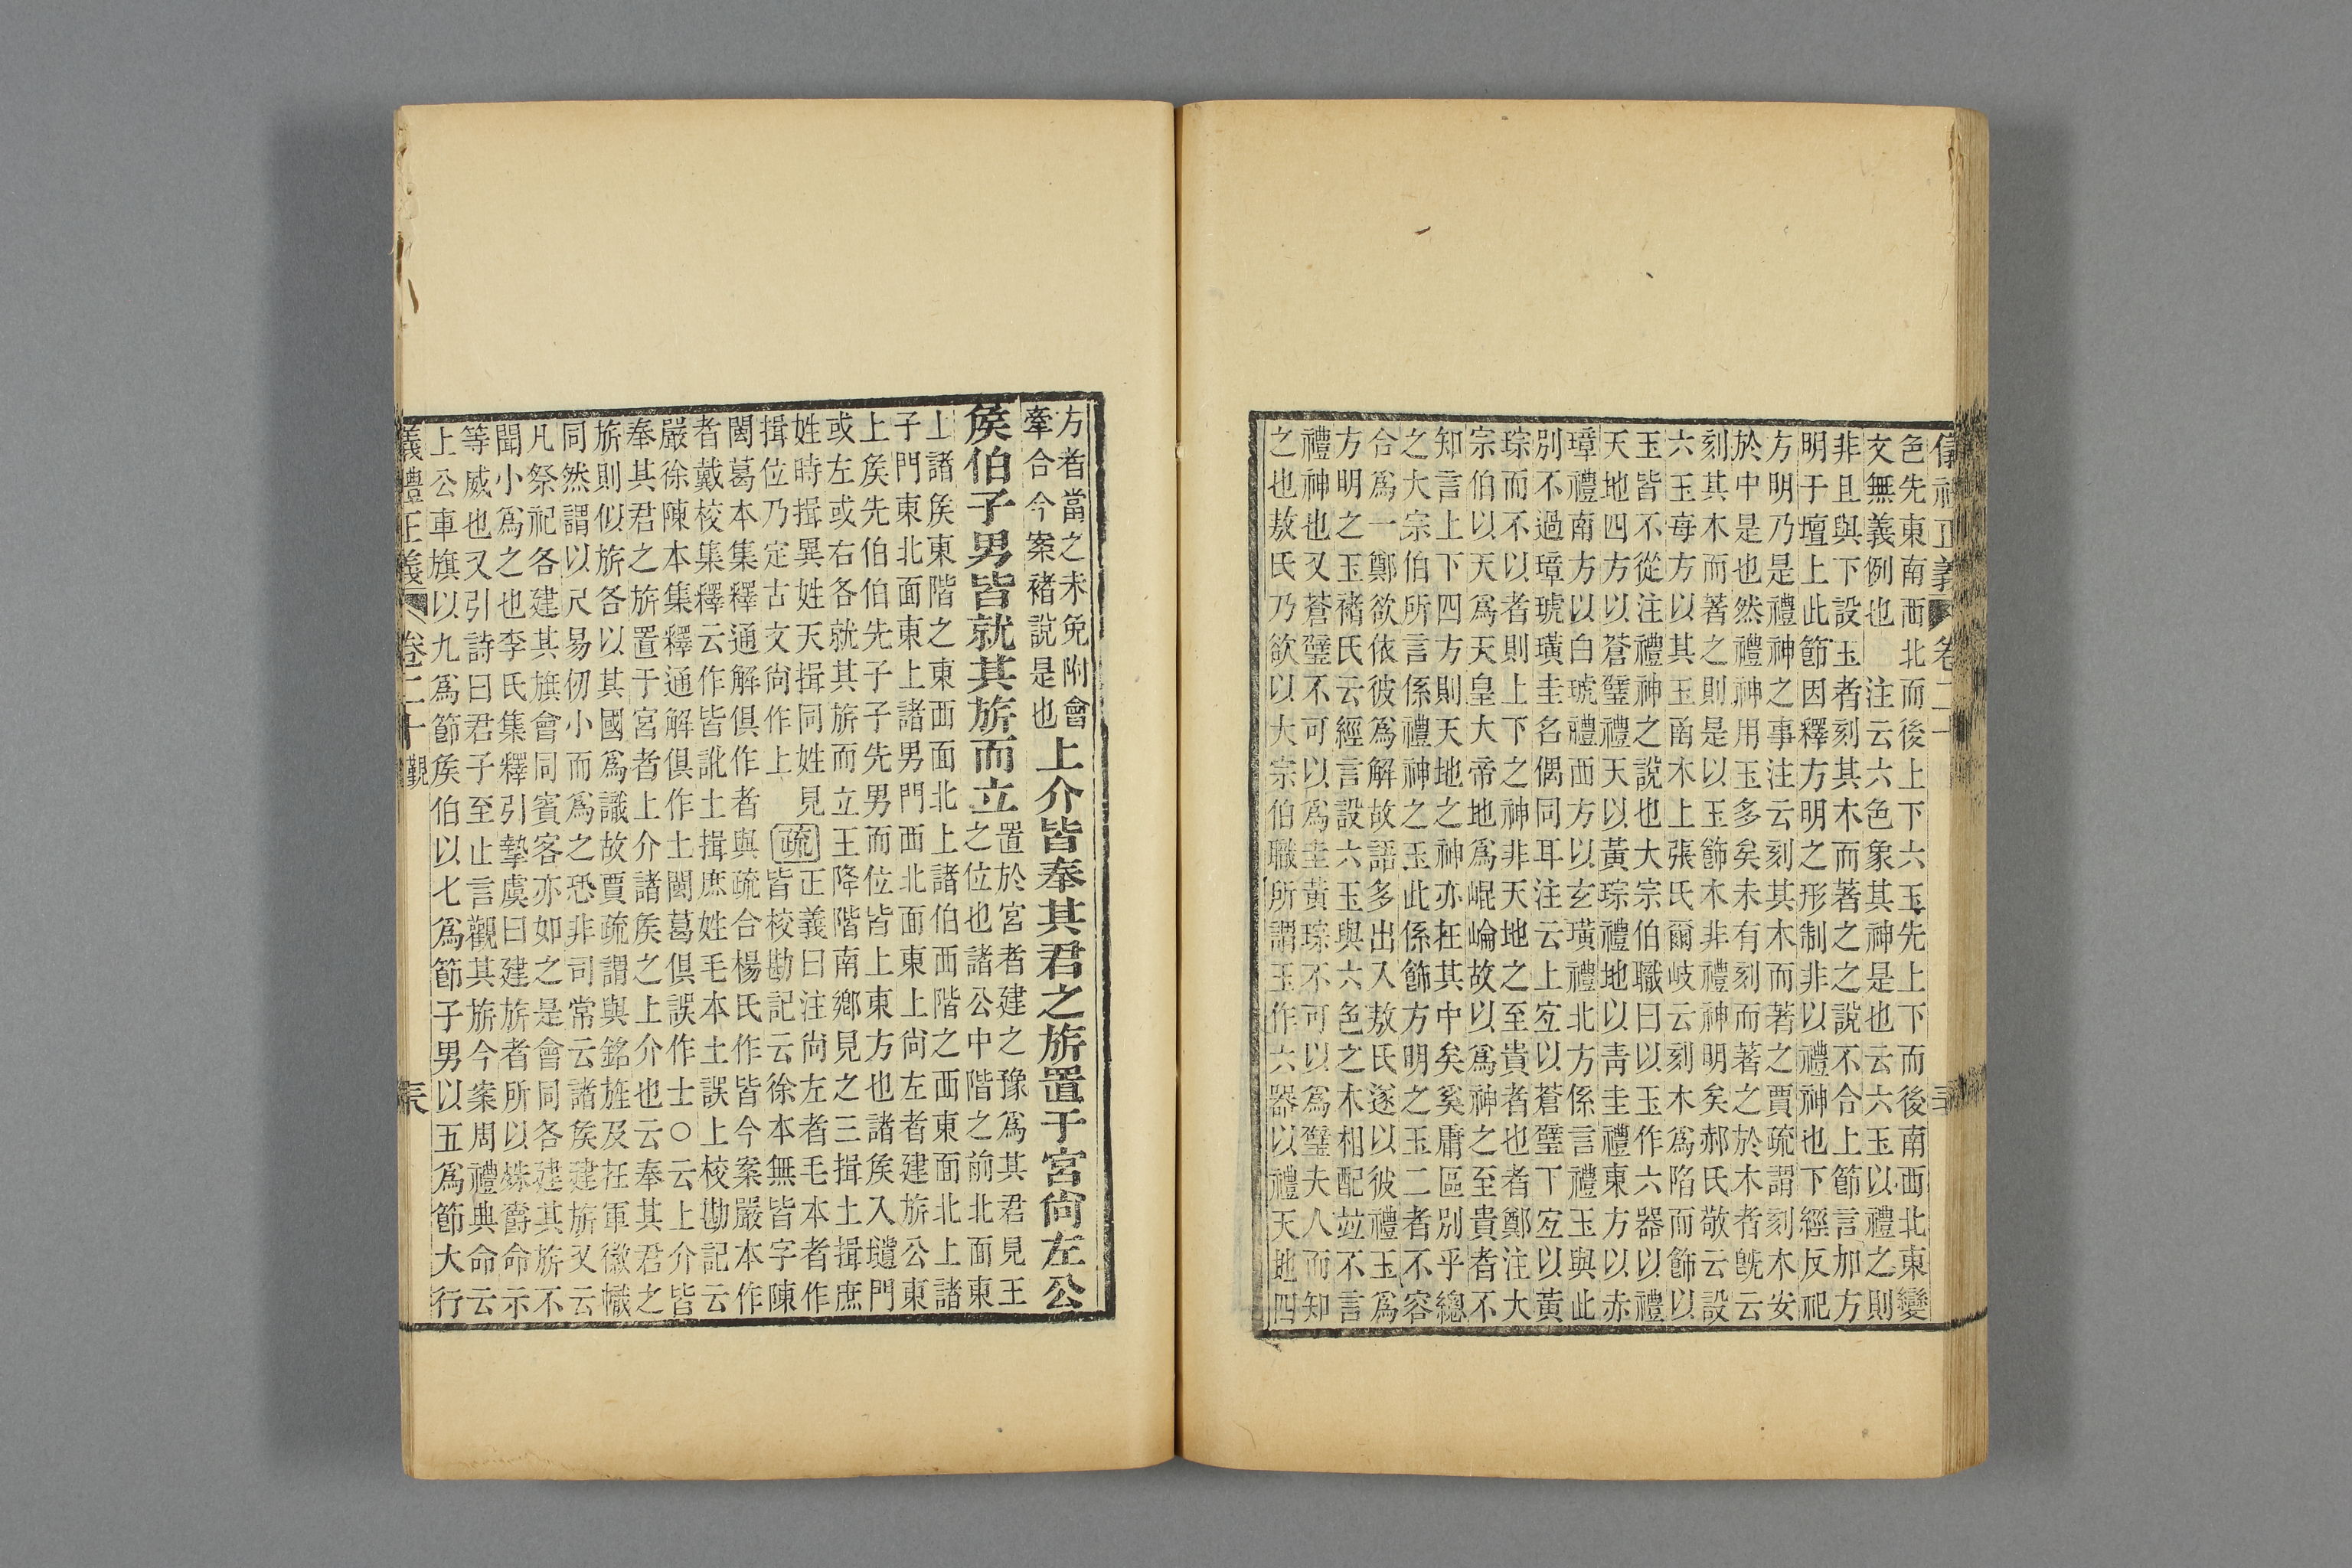 儀禮正義 卷二十
色先東南西北而後上下六玉先上下而後南西北東變
文無義例也 注云六色象其神是也云六玉以禮之則
非且與下設玉者刻其木而著之之說不合上節言加方
明于壇上此節因釋方明之形制非以禮神也下經反祀
方明乃是禮神之事注云刻其木而著之賈疏謂刻木安
於中是也然禮神用玉多矣未有刻而著之於木者旣云
刻其木而著之則是以玉飾木非禮神明矣郝氏敬云設
六玉每方以其玉㓰木上張氏爾岐云刻木爲陷而飾以
玉皆不從注禮神之說也大宗伯職曰以玉作六器以禮
天地四方以蒼璧禮天以黃琮禮地以靑圭禮東方以赤
璋禮南方以白琥禮西方以玄璜禮北方係言禮玉與此
別不過璋琥璜圭名偶同耳注云上宜以蒼璧下宜以黃
琮而不以者則上下之神非天地之至貴者也者鄭注大
宗伯以天爲天皇大帝地爲崐崘故以爲神之至貴者不
知言上下四方則天地之神亦在其中矣奚庸區別乎總
之大宗伯所言係禮神之玉此係飾方明之玉二者不容
合爲一鄭欲依彼爲解故語多出入敖氏遂以彼禮玉爲
方明之玉褚氏云經言設六玉與六色之木相配竝不言
禮神也又蒼璧不可以爲圭黃琮不可以爲璧夫人而知
之也敖氏乃欲以大宗伯職所謂玉作六器以禮天地四
方者當之未免附會
牽合今案褚說是也
上介皆奉其君之旂置于宮尙左公
矦伯子男皆就其旂而立
置於宮者建之豫爲其君見王
之位也諸公中階之前北面東
上諸矦東階之東西面北上諸伯西階之西東面北上諸
子門東北面東上諸男門西北面東上尙左者建旂公東
上矦先伯伯先子子先男而位皆上東方也諸矦入壝門
或左或右各就其旂而立王降階南鄕見之三揖土揖庶
姓時揖異姓天揖同姓見
揖位乃定古文尙作上
疏正義曰注尙左者毛本者作
皆校勘記云徐本無皆字陳
閩葛本集釋通解俱作者與疏合楊氏作皆今案嚴本作
者戴校集釋云作皆訛土揖庶姓毛本土誤上校勘記云
嚴徐陳本集釋通解俱作土閩葛俱誤作士○云上介皆
奉其君之旂置于宮者上介諸矦之上介也云奉其君之
旂則似旂各以其國爲識故賈疏謂與銘旌及在軍徽幟
同然謂以尺易仞小而爲之恐非司常云諸矦建旂又云
凡祭祀各建其旗會同賓客亦如之是會同各建其旂不
聞小爲之也李氏集釋引摯虞曰建旂者所以殊爵命示
等威也又引詩曰君子至止言觀其旂今案周禮典命云
上公車旗以九爲節矦伯以七爲節子男以五爲節大行
義禮正義 卷二十 覲